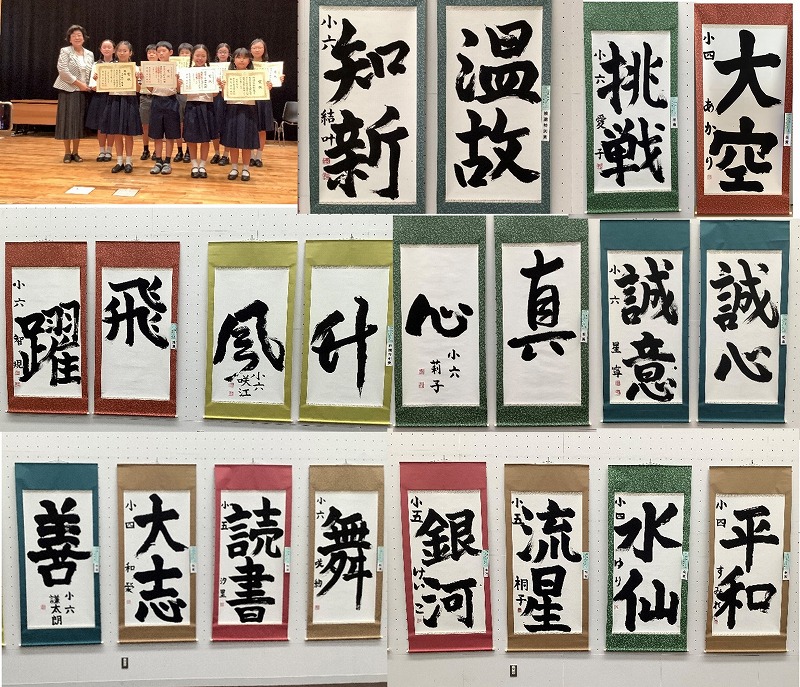 温故
知新
小六
結叶
大空
小四
あかり
挑戦
小六
愛子
飛
躍
小六
智現
升
風
小六
咲江
真
心
小六
莉子
誠心
誠意
小六
星寧
善
小六
謹太朗
大志
小四
和發
読書
小五
汐里
舞
小六
銀河
小五
けいこ
流星
小五
桐子
水仙
小四
ゆり
平和
小四
すみれ